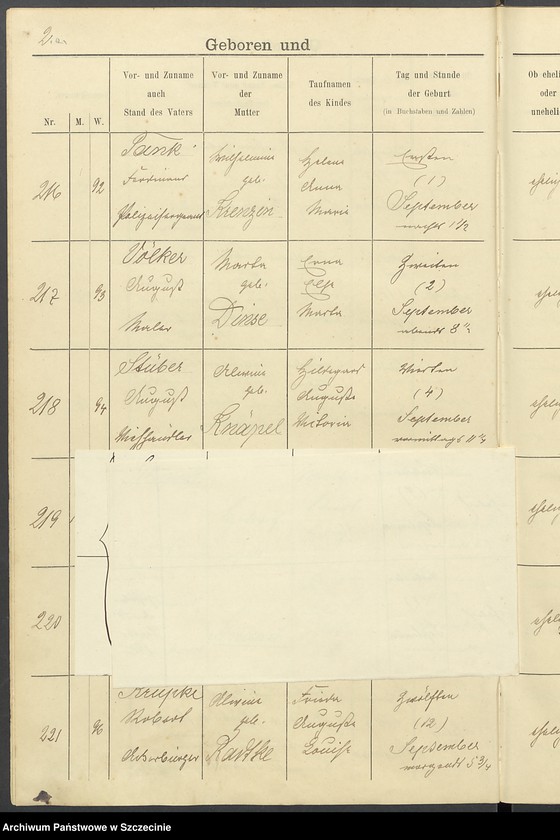 Geboren und
Nr.
M.
W.
Vor- und Zuname
auch
Stand des Vaters
Vor- und Zuname
der
Mutter
Taufnamen
des Kindes
Tag und Stunde
der Geburt
(in Buchstaben und Zahlen)
Ob eheli
oder
uneheli
216
92
Pank
Ferdinand
Polizeisergeant
Wilhelmine
geb.
Krenzin
Helene
Anna
Marie
Ersten
(1)
September
nachts 1 1/2
217
93
Völker
August
Maler
Marta
geb.
Dinse
Erna
Else
Marta
Zweiten
(2)
September
abends 8
218
94
Stüber
August
Viehhändler
geb.
Knäpel
Hildegard
Auguste
Victoria
Vierten
(4)
September
vormittags 11
219
220
221
96
Krupke
Robert
Ackerbürger
geb.
Radtke
Frieda
Auguste
Louise
Zwölften
(12)
September
morgends 5 3/4
Archiwum Państwowe w Szczecinie